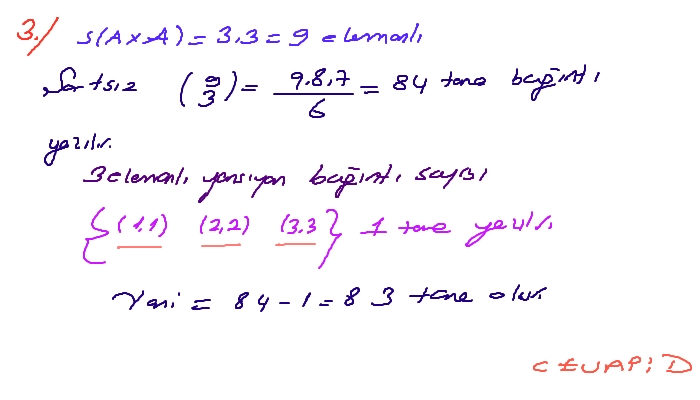 3.) S(AxA) = 3.3 = 9 elemanlı
Şartsız (9 3) = 9.8.7 / 6 = 84 tane bağıntı
yazılır.
3 elemanlı yansıyan bağıntı sayısı
{(1,1) (2,2) (3.3} 1 tane yazılır.
Yani = 84 - 1 = 83 tane olur.
CEVAP: D